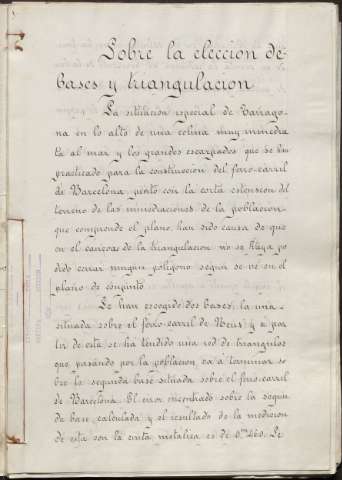 Sobre la eleccion de
bases y triangulacion
La situacion especial de Tarrago-
na en lo alto de una colina muy inmedia
ta al mar y los grandes escarpados que se han
practicado para la construccion del ferro-carril
de Barcelona junto con la corta estension del
terreno de las inmediaciones de la poblacion
que comprende el plano, han sido causa de que
en el canevas de la triangulacion no se haya po
dido cerrar ningun polígono segun se ve en el
plano de conjunto.
Se han escogido dos bases; la una
situada sobre el ferro-carril de Reus y a par
tir de esta se ha tendido una red de triangulos
que pasando por la poblacion va a terminar so
bre la segunda base situada sobre el ferro-carril
de Barcelona. El error encontrado sobre la segun
da base calculada y el resultado de la medicion
de esta con la cinta metalica es de 0,m 460. Se